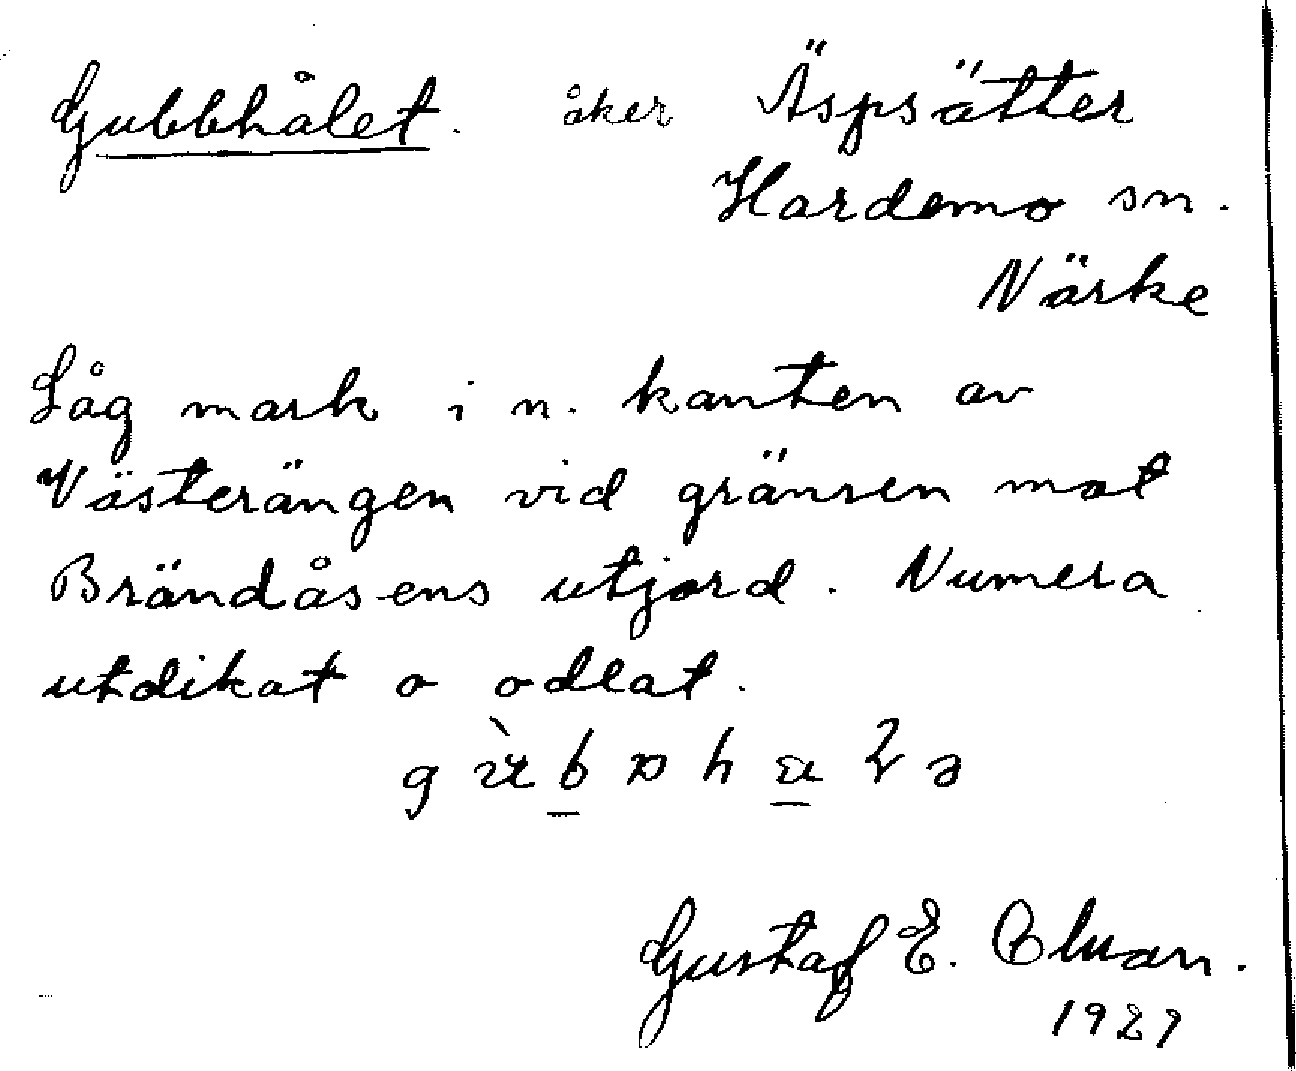 Gubbhålet. åker Äspsätter
Hardemo sn.
Närke
Låg mark i n. kanten av
Västerängen vid gränsen mot
Brändåsens utjord. Numera
utdikat o odlat.
Gustaf E.
1929